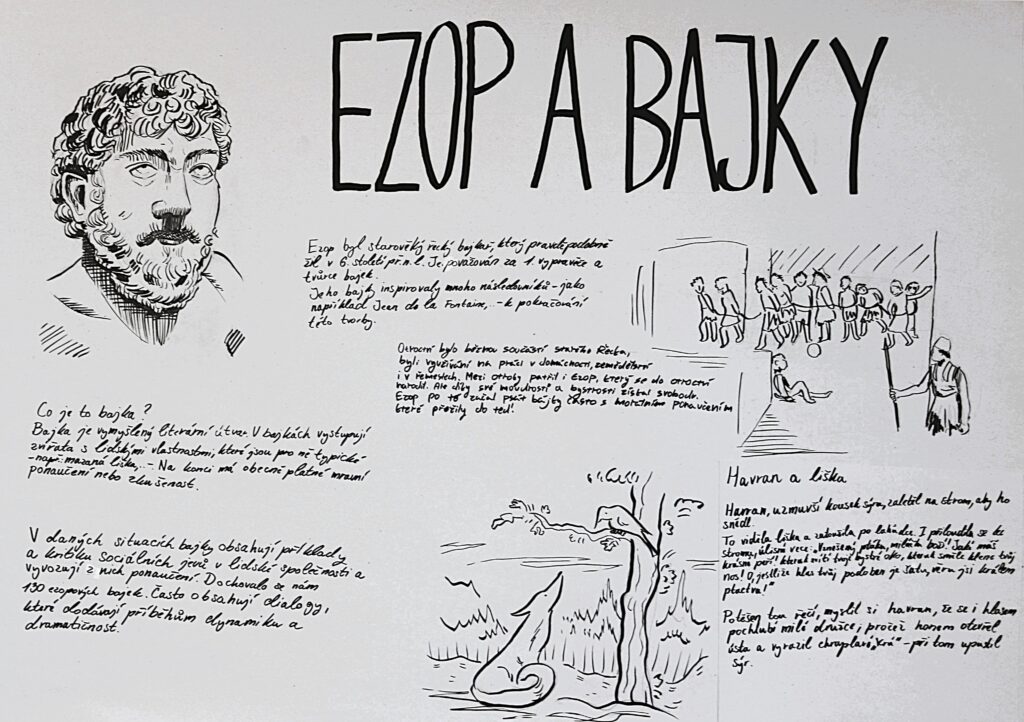 EZOP A BAJKY
Ezop byl starověký řecký bajkař, který pravděpodobně
žil v 6. století př. n. l. Je považován za 1. vypravěče a
tvůrce bajek.
Jeho bajky inspirovaly mnoho následovníků - jako
například Jean de la Fontaine,... k pokračování
této tvorby.
Otroctví bylo běžnou součástí starého Řecka,
byli využíváni na práci v domácnosti, zemědělství
i v řemeslech. Mezi otroky patřil i Ezop, který se do otroctví
narodil. Ale díky své moudrosti a bystrosti získal svobodu.
Ezop po té začal psát bajky často s morálním ponaučením
které přežily do teď.
Co je to bajka?
Bajka je vymyšlený literární útvar. V bajkách vystupují
zvířata s lidskými vlastnostmi, které jsou pro ně typické
- např. mazaná liška,... - Na konci má obecně platné mravní
ponaučení nebo zkušenost.
V daných situacích bajky obsahují příklady
a kritiku sociálních jevů v lidské společnosti a
vyvozují z nich ponaučení. Dochovalo se nám
130 ezopových bajek. Často obsahují dialogy,
které dodávají příběhům dynamiku a
dramatičnost.
Havran a liška
Havran, uzmuvší kousek sýra, zaletěl na strom, aby ho
snědl.
To viděla liška a zatoužila po lahůdce. I přiloudila se ke
stromu, úlisně vece: „Vznešený ptáku, miláčku boží! Jaké máš
krásné peří! kterak svítí tvůj bystré oko, kterak směle křene tvůj
nos! O, jestliže hlas tvůj podoben je šatu, věru jsi králem
ptactva!"
Potěšen tou řečí, myslil si havran, že se i hlasem
pochlubí milé družce; pročež honem otevřel
ústa a vyrazil chraplavé „Krá" - při tom upustil
sýr.